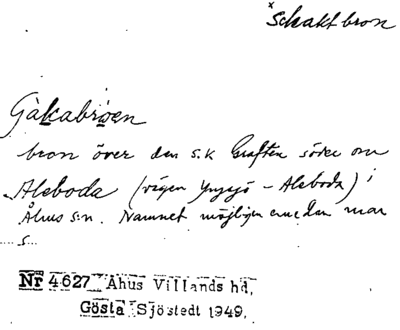 Schakt bron
Gakabroen
bron över den s.k Graften söder om
Aleboda (vägen Yngsjö - Aleboda) i
Åhus s:n. Namnet möjligen man
s
Nr 4627 Åhus Villands hd,
Gösta Sjöstedt 1949.